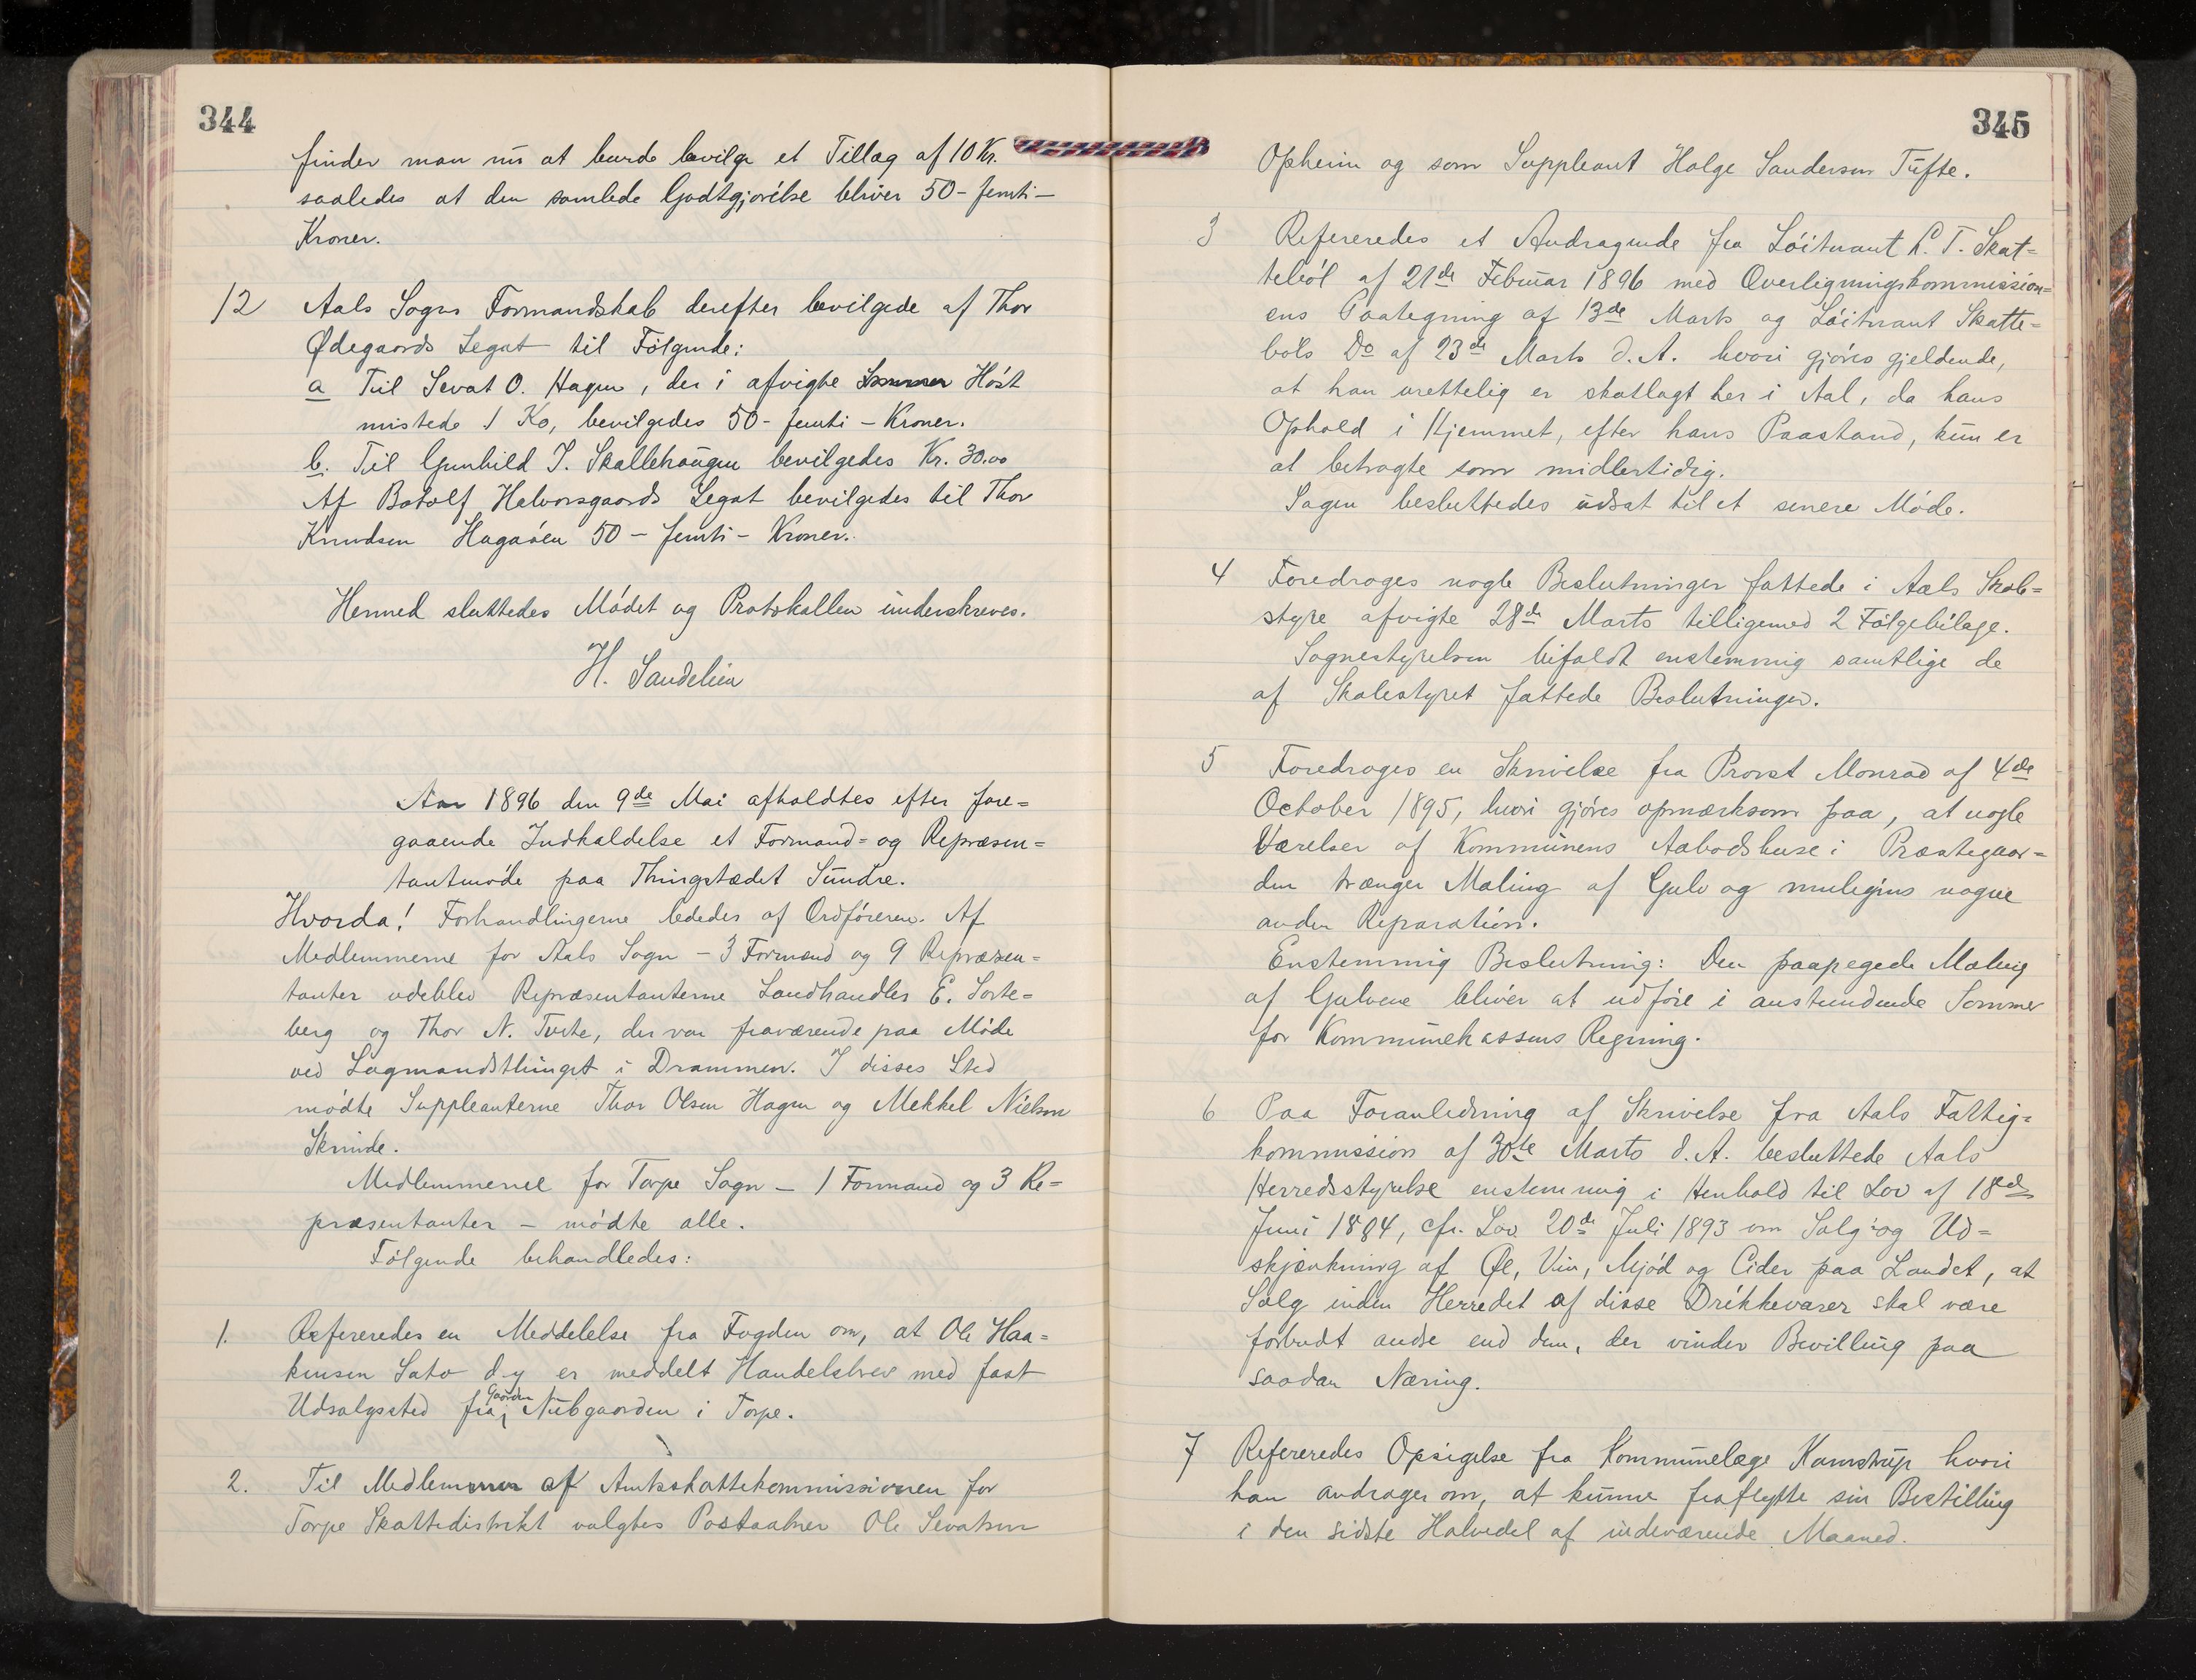 344
finder man nu at burde bevilge et Tillæg af 10 Kr.
saaledes at den samlede Godtgjørelse bliver 50 - femti -
Kroner.
12 Aals Sogns Formandskab derefter bevilgede af Thor
Ødegaards Legat til Følgende:
a Til Sevat O. Hagen, der i afvigte Høst
mistede 1 Ko, bevilgedes 50 - femti - Kroner.
b. Til Gunhild T. Skallehaugen bevilgedes Kr. 30.00
Af Botolf Halvorsgaards Legat bevilgedes til Thor
Knudsen Hagaøen 50 - femti - Kroner.
Hermed sluttedes Mødet og Protokollen underskreves.
H. Sandelien
Aar 1896 den 9de Mai afholdtes efter fore=
gaaende Indkaldelse et Formand= og Repræsen=
tantmøde paa Thingstedet Sundre.
Hvorda! Forhandlingerne lededes af Ordføreren. Af
Medlemmerne for Aals Sogn - 3 Formænd og 9 Repræsen=
tanter udeblev Repræsentanterne Landhandler E. Sorte=
berg og Thor N. Tveite, der var fraværende paa Møde
ved Lagmandsthinget i Drammen. I disses Sted
mødte Suppleanterne Thor Olsen Hagen og Mekkel Nielsen
Skrinde.
Medlemmerne for Torpe Sogn - 1 Formand og 3 Re=
præsentanter - mødte alle.
Følgende behandledes:
1. Refereredes en Meddelelse fra Fogden om, at Ole Haa=
kensen Sato d.y er meddelt Handelsbrev med fast
Udsalgssted fra Gaarden Nubgaarden i Torpe.
2. Til Medlemmer af Amtsskattekommissionen for
Torpe Skattedistrikt valgtes Postaabner Ole Sevatsen
345
Opheim og som Suppleant Holge Sandersen Tufte.
3 Refereredes et Andragende fra Løitnant L. T. Skat=
tebøl af 21de Februar 1896 med Overligningskommission=
ens Paategning af 13de Marts og Løitnant Skatte=
bøls Do af 23de Marts d. A. hvori gjøres gjeldende,
at han urettelig er skatlagt her i Aal, da hans
Ophold i Hjemmet, efter hans Paastand, kun er
at betragte som midlertidig.
Sagen besluttedes udsat til et senere Møde.
4 Foredroges nogle Beslutninger fattede i Aals Skole=
styre afvigte 28de Marts tilligemed 2 Følgebilage.
Sognestyrelsen bifaldt enstemmig samtlige de
af Skolestyret fattede Beslutninger.
5 Foredroges en Skrivelse fra Provst Monrad af 4de
October 1895, hvori gjøres opmærksom paa, at nogle
Værelser af Kommunens Aabodshuse i Præstegaar=
den trænger Maling af Gulv og muligens nogen
anden Reparation.
Enstemmig Beslutning: Den paapegede Maling
af Gulvene bliver at udføre i anstundende Sommer
for Kommunekassens Regning.
6 Paa Foranledning af Skrivelse fra Aals Fattig=
kommission af 30te Marts d. A. besluttede Aals
Herredsstyrelse enstemmig i Henhold til Lov af 18de
Juni 1884, cfr. Lov 20de Juli 1893 om Salg og Ud=
skjænkning af Øl, Vin, Mjød og Cider paa Landet, at
Salg inden Herredet af disse Drikkevarer skal være
forbudt andre end dem, der vinder Bevilling paa
saadan Næring.
7 Refereredes Opsigelse fra Kommunelæge Kamstrup hvori
han andrager om, at kunne fraflytte sin Bestilling
i den sidste Halvdel af indeværende Maaned.